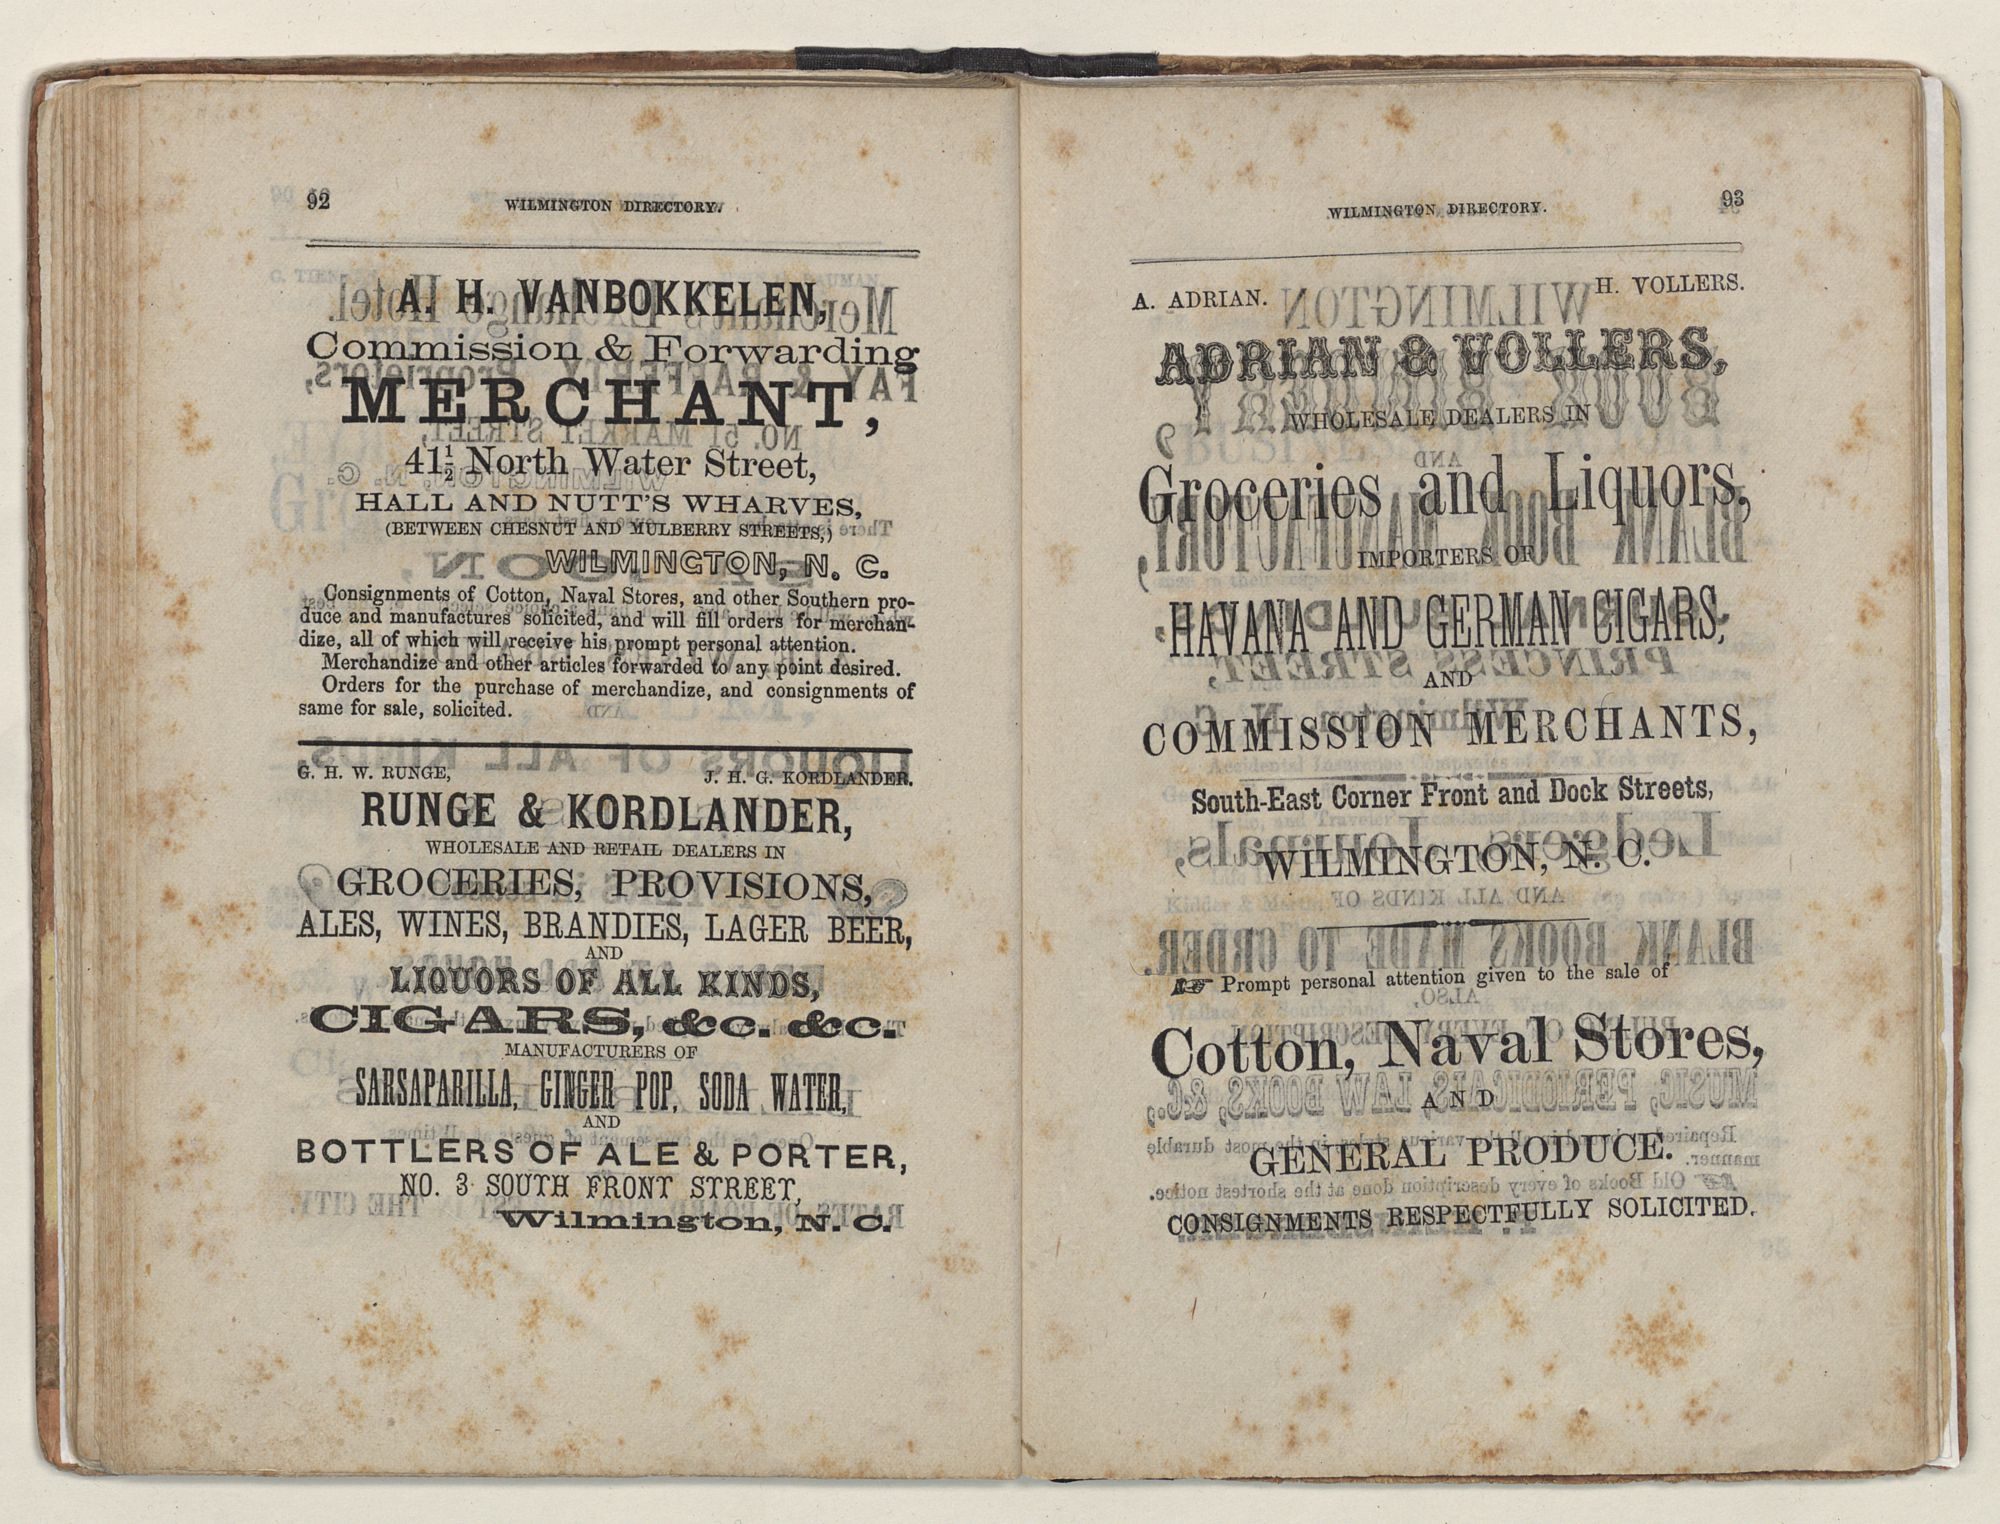 92
WILMINGTON DIRECTORY.
A. H. VANBOKKELEN,
Commission & Forwarding
MERCHANT,
41½ North Water Street,
HALL AND NUTT'S WHARVES,
(BETWEEN CHESNUT AND MULBERRY STREETS,)
WILMINGTON, N. C.
Consignments of Cotton, Naval Stores, and other Southern pro-
duce and manufactures solicited, and will fill orders for merchan-
dize, all of which will receive his prompt personal attention.
Merchandize and other articles forwarded to any point desired.
Orders for the purchase of merchandize, and consignments of
same for sale, solicited.
G. H. W. RUNGE, J. H. G. KORDLANDER.
RUNGE & KORDLANDER,
WHOLESALE AND RETAIL DEALERS IN
GROCERIES, PROVISIONS,
ALES, WINES, BRANDIES, LAGER BEER,
AND
LIQUORS OF ALL KINDS,
CIGARS, &c. &c.
MANUFACTURERS OF
SARSAPARILLA, GINGER POP, SODA WATER,
AND
BOTTLERS OF ALE & PORTER,
NO. 3 SOUTH FRONT STREET,
Wilmington, N. C.
WILMINGTON DIRECTORY.
93
A. ADRIAN. H. VOLLERS.
ADRIAN & VOLLERS,
WHOLESALE DEALERS IN
Groceries and Liquors,
IMPORTERS OF
HAVANA AND GERMAN CIGARS,
AND
COMMISSION MERCHANTS,
South-East Corner Front and Dock Streets,
WILMINGTON, N. C.
☞ Prompt personal attention given to the sale of
Cotton, Naval Stores,
AND
GENERAL PRODUCE.
CONSIGNMENTS RESPECTFULLY SOLICITED.